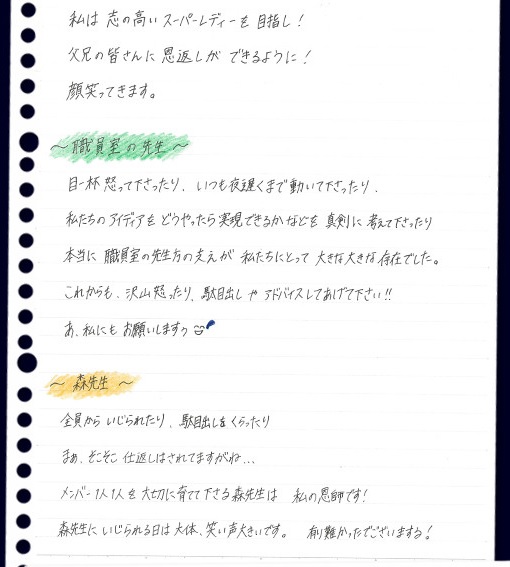 私は 志の高い スーパーレディー を 目指し！
父兄の皆さんに 恩返しが できるように！
頑張ってきます。
〜職員室の先生〜
目一杯 怒って下さったり、いつも夜遅くまで動いて下さったり、
私たちの アイディアを どうやったら実現できるか などを 真剣に 考えて下さったり
本当に 職員室の先生方の支えが 私たちにとって 大きな大きな 存在でした。
これからも、沢山 怒ったり、駄目出し や アドバイスしてあげて下さい!!
あ、私にも お願いしますっ
〜 森先生 〜
全員から いじられたり、駄目出しを くらったり
まぁ、そこそこ 仕返しはされてますがね...
メンバー1人1人を 大切に育てて下さる 森先生は 私の恩師です！
森先生に いじられる日は 大体、笑い声大きいです。 有り難かったでございまする！